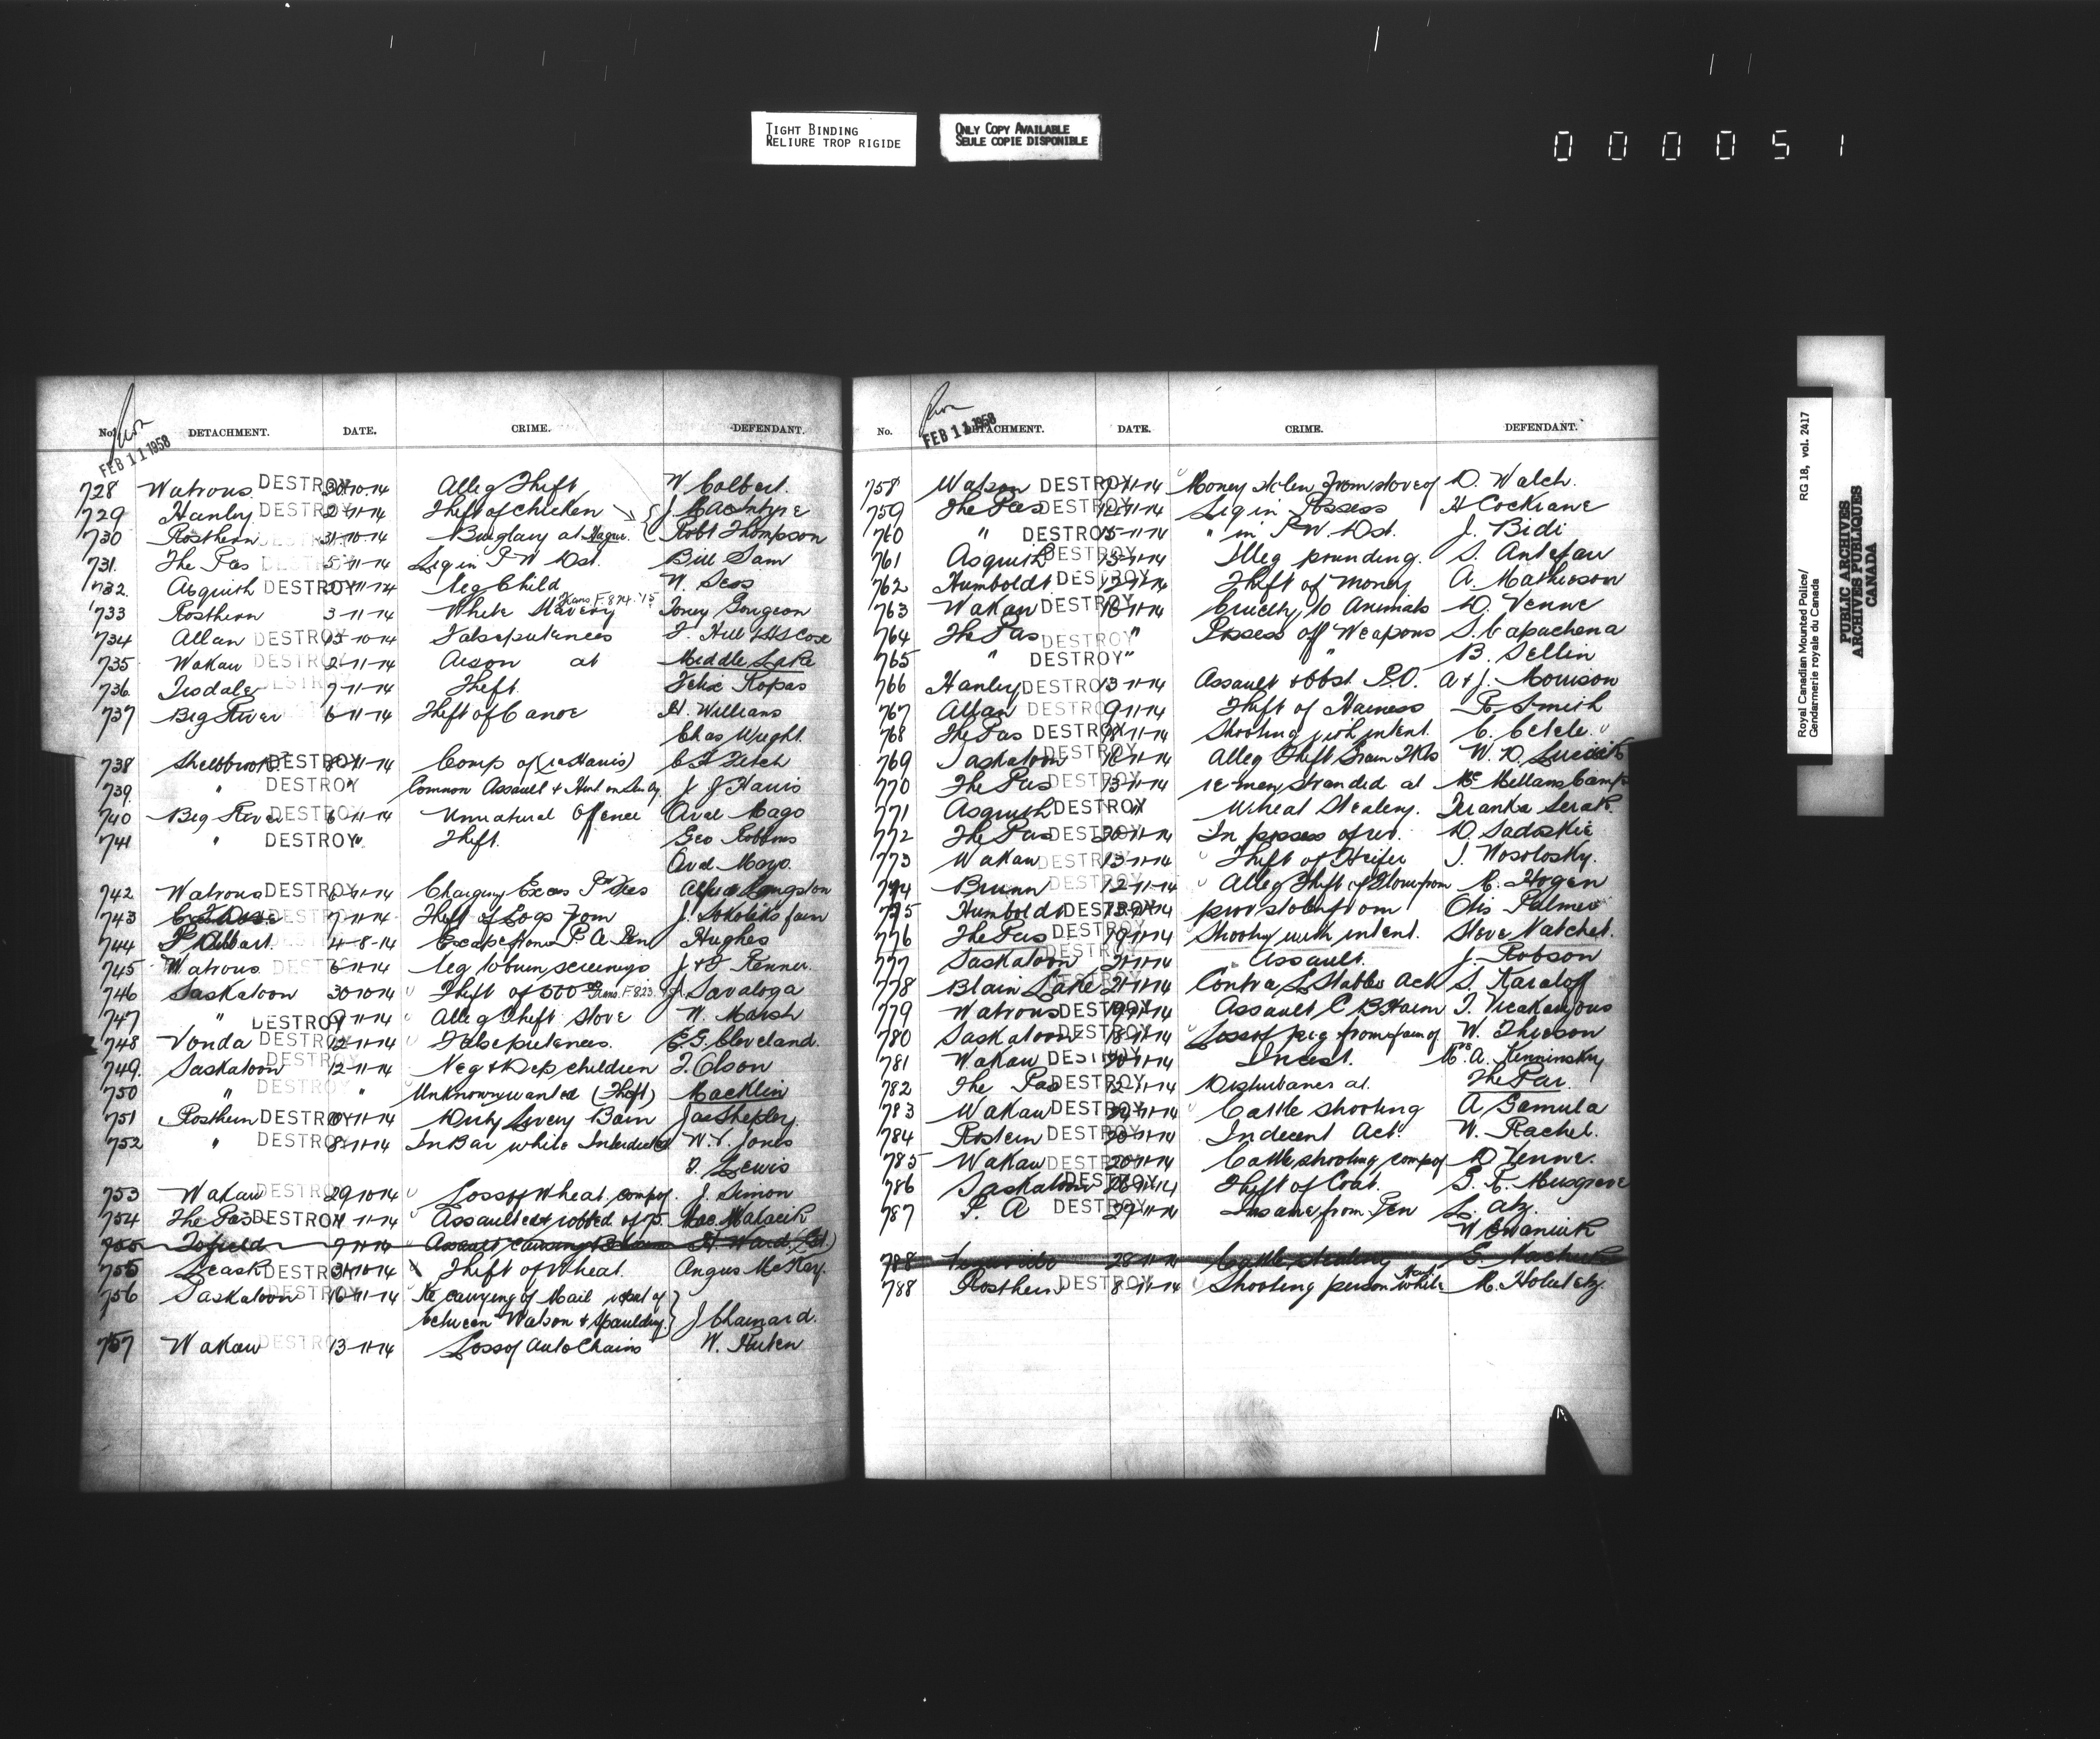 TIGHT BINDING
RELIURE TROP RIGIDE
ONLY COPY AVAILABLE
SEULE COPIE DISPONIBLE
0 0 0 0 5 1
No. DETACHMENT. DATE. CRIME. DEFENDANT.
FEB 11 1958
728 Watrous DESTROY 30-10-14 Alleg Theft W Colbert.
729 Hanley DESTROY 2-11-14 Theft of Chicken J. MacIntyre
730 Rosthern 31-10-14 Burglary at Hague. Robt Thompson
731. The Pas 5-11-14 Liq in P W Dst. Bill Sam
732. Asquith DESTROY 11-14 Neg Child W. Sess
733 Rosthern 3-11-14 White Slavery Trans F.874.'15 Toney Gurgeon
734 Allan DESTROY 10-14 False pretences
735 Wakaw DESTROY 2-11-14 Arson at Middle Lake
736. Tisdale DESTROY 7-11-14 Theft. Felix Kopas
737 Big River 6-11-14 Theft of Canoe H. Williams
Chas Wright.
738 Shellbrook DESTROY 11-14 Comp of (re Harris) C A Fetch
739. " DESTROY " Common Assault J J Harris
740 Big River DESTROY 6-11-14 Unnatural Offence Mago
741 " DESTROY " Theft. Geo Robbins
Mayo.
742 Watrous DESTROY 6-11-14 Charging Exces Fees Langston
743 DESTROY 7-11-14 Theft of Logs from J. farm
744 P Albert. 4-8-14 Escape from P. A Pen Hughes
745 Watrous DESTROY 6-11-14 Neg to burn screenings J & F Renner.
746 Saskatoon 30 10 14 Theft of Trans. F 823. J. Savaloga
747 " DESTROY 11-14 Alleg Theft Stove W. Marsh
748 Vonda DESTROY 12-11-14 False pretences. E. G. Cleveland.
749. Saskatoon DESTROY 12-11-14 Neg & Dep children T. Olson
750 " DESTROY " Unknown wanted (Theft) Macklin
751 Rosthern DESTROY 11-14 Dirty Livery Barn
752 " DESTROY 8-11-14 In Bar while Interdicted W. V. Jones
T. Lewis
753 Wakaw DESTROY 29 10 14 Loss of Wheat, comp of. J. Simon
754 The Pas DESTROY 11-14 Assaulted & robbed of 75.
755 Tofield 7-11-14 Assault causing H Ward
755 Leask DESTROY 31-10-14 Theft of Wheat. Angus McKay.
756 Saskatoon DESTROY 16-11-14 Re carrying of Mail
between Watson & Spaulding J Chainard.
757 Wakaw DESTROY 13-11-14 Loss of Auto Chains W. Huten
No. DETACHMENT. DATE. CRIME. DEFENDANT.
FEB 11 1958
758 Watson DESTROY 11-14 Money stolen from store of D. Walch.
759 The Pas DESTROY 11-14 Liq in Possess H Cockrane
760 " DESTROY 15-11-14 " in P W. Dst. J. Bidi
761 Asquith DESTROY 13-11-14 Illeg pounding. S. Antefau
762 Humboldt DESTROY 11-14 Theft of Money A. Mathieson
763 Wakaw DESTROY 16-11-14 Cruelty to Animals D. Venne
764 The Pas DESTROY " Possess off Weapons S. Capachena
765 " DESTROY " " B. Sellin
766 Hanley DESTROY 13-11-14 Assault & Obst P.O. A & J. Morrison
767 Allan DESTROY 9-11-14 Theft of Harness R Smith
768 The Pas DESTROY 11-14 Shooting with intent. C. Cetele.
769 Saskatoon DESTROY 16-11-14 Alleg Theft Grain Tkts W. D.
770 The Pas DESTROY 13-11-14 re men stranded at McMellans Camp
771 Asquith DESTROY Wheat Stealing.
772 The Pas DESTROY 11-14 In possess of rev. D. Sadoskie
773 Wakaw DESTROY 13-11-14 Theft of Heifer J. Wosolosky.
774 Bruno DESTROY 12-11-14 Alleg Theft of from M. Hogen
775 Humboldt DESTROY stolen from Otis Palmer
776 The Pas DESTROY 19-11-14 Shooting with intent. Steve Katchel.
777 Saskatoon DESTROY 21-11-14 Assault. J. Robson
778 Blain Lake DESTROY 21-11-14 Contra L Stable Act S. Karaloff
779 Watrous DESTROY 11-14 Assault C B Harm
780 Saskatoon DESTROY 18-11-14 Loss of pig from farm of W. Thieson
781 Wakaw DESTROY 11-14 Incest. Mrs A. Kenninsky
782 The Pas DESTROY 12-11-14 Disturbances at. The Pas.
783 Wakaw DESTROY 11-14 Cattle shooting A Gamula
784 Rostern DESTROY 11-14 Indecent Act. W. Rachel.
785 Wakaw DESTROY 20-11-14 Cattle shooting comp of D Venne.
786 Saskatoon DESTROY Theft of Coat. G. R. Musgrove
787 P. A DESTROY 11-14 Insane from Pen
788 28-11-14 Cattle stealing
788 Rosthern DESTROY 8-11-14 Shooting person while M. Holuletz.
Royal Canadian Mounted Police/
Gendarmerie royale du Canada
RG 18, vol. 2417
PUBLIC ARCHIVES
ARCHIVES PUBLIQUES
CANADA